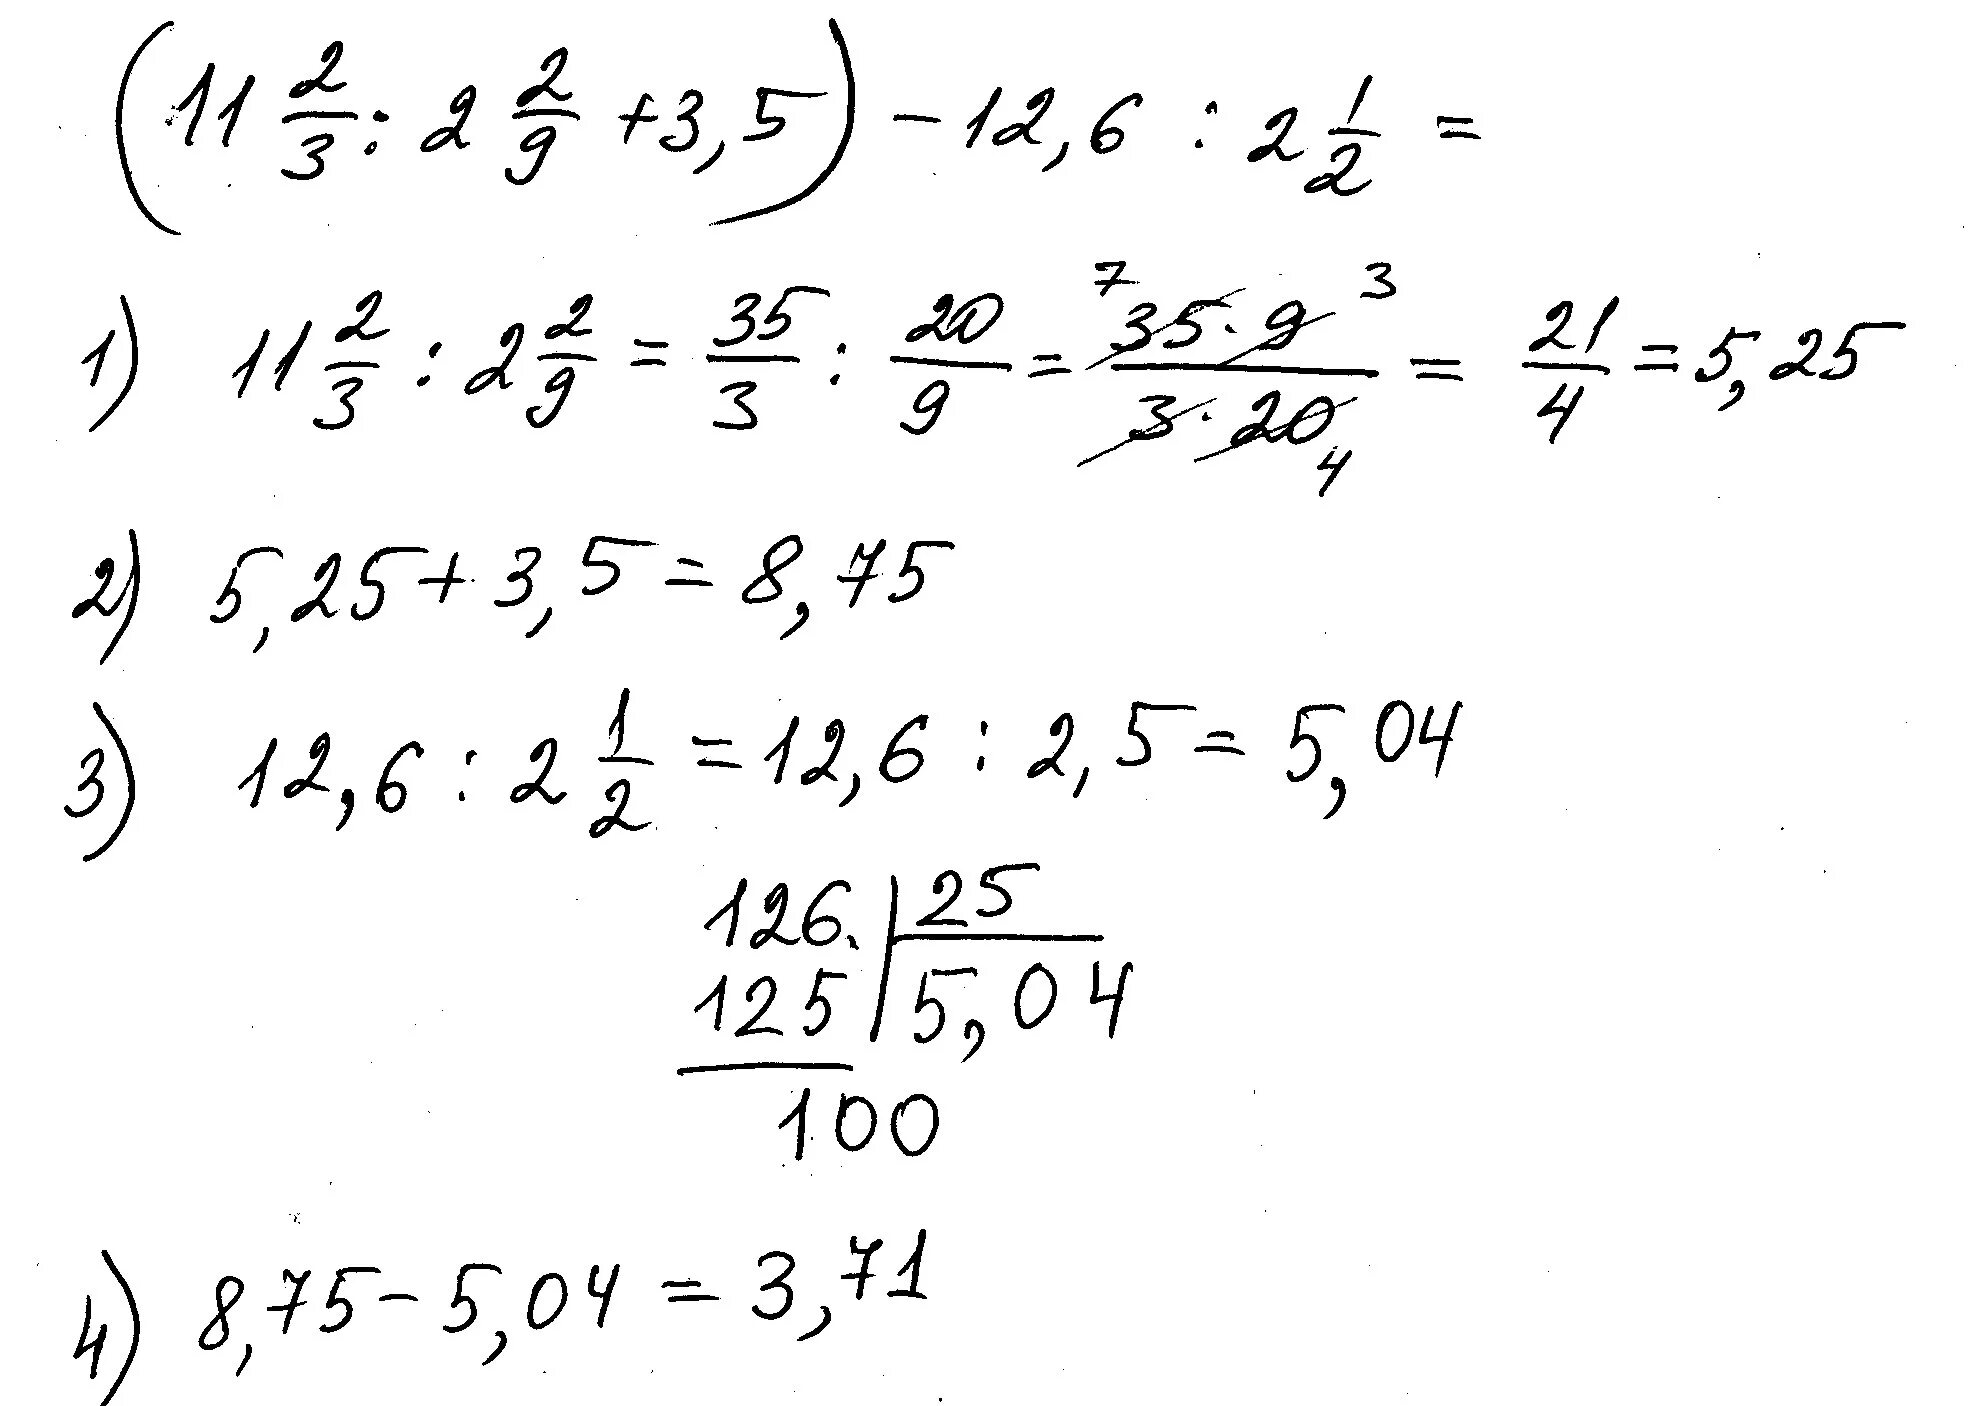 (11 2/3 : 2 2/9 + 3,5) - 12,6 : 2 1/2 =
1) 11 2/3 : 2 2/9 = 35/3 : 20/9 = 7 35·9 3 / 3·20 4 = 21/4 = 5,25
2) 5,25 + 3,5 = 8,75
3) 12,6 : 2 1/2 = 12,6 : 2,5 = 5,04
126 | 25
125 | 5,04
100
4) 8,75 - 5,04 = 3,71